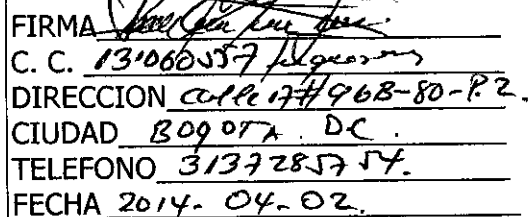 FIRMA
C. C. 13'060557
DIRECCION calle 17 # 96B-80-P.2.
CIUDAD BOGOTA. DC.
TELEFONO 3137285754.
FECHA 2014-04-02.